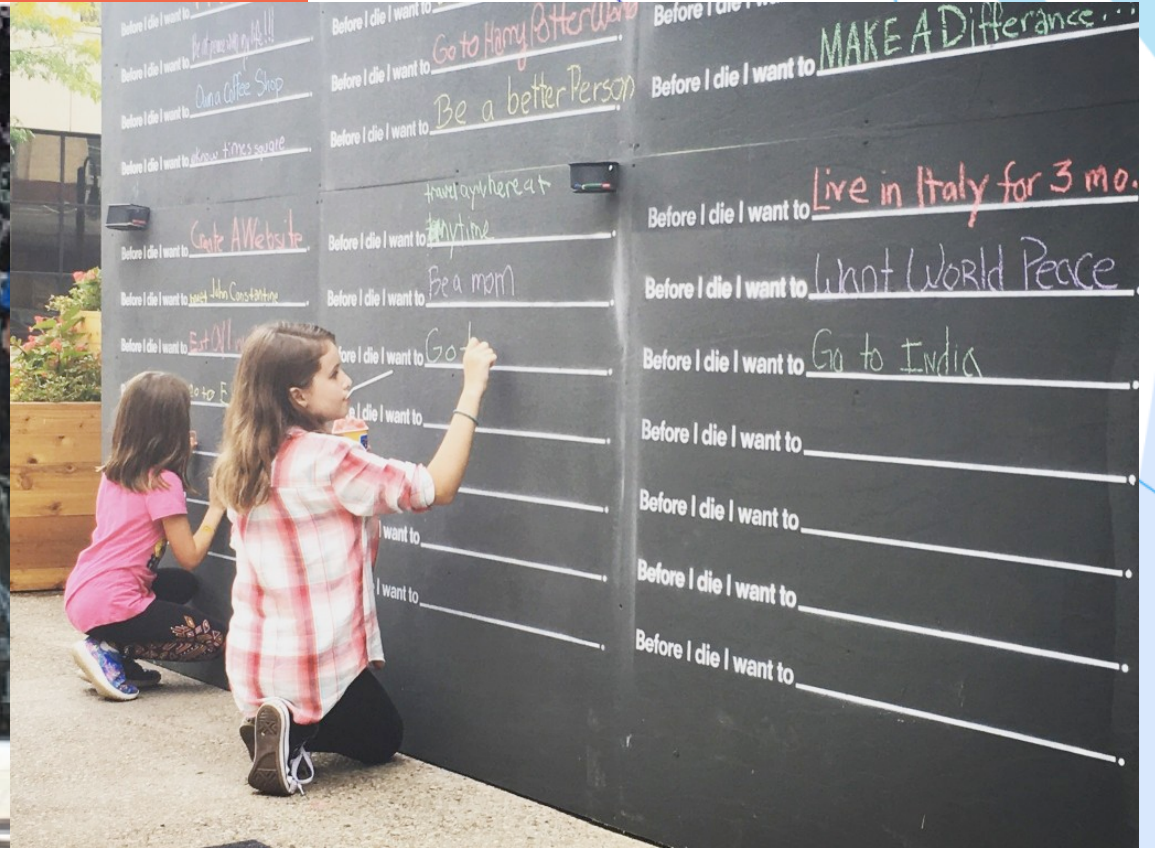 Before I die I want to
Before I die I want to
Before I die I want to Own a Coffee Shop
Before I die I want to times square
Before I die I want to Create A Website
Before I die I want to John Constantine
Before I die I want to Eat All
go to E
Before I die I want to
Before I die I want to Go to Harry Potter World
Before I die I want to Be a better Person
travel anywhere at
Before I die I want to anytime
Before I die I want to Be a mom
fore I die I want to Go t
e I die I want to
I want to
I want to
Before I die I want
Before I die I want to MAKE A Difference...
Before I die I want to Live in Italy for 3 mo.
Before I die I want to Want WORld Peace
Before I die I want to Go to India
Before I die I want to
Before I die I want to
Before I die I want to
Before I die I want to